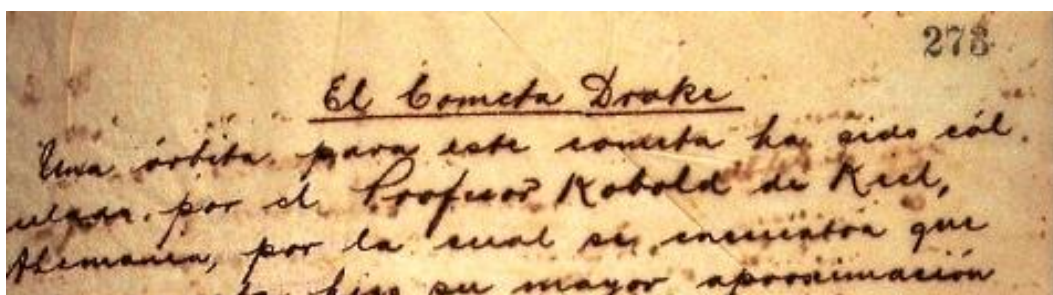 273
El Cometa Drake
Una órbita para este cometa ha sido cál
culada por el Profesor Kobold de Kiel,
Alemania, por la cual se encuentra que
hizo su mayor aproximación